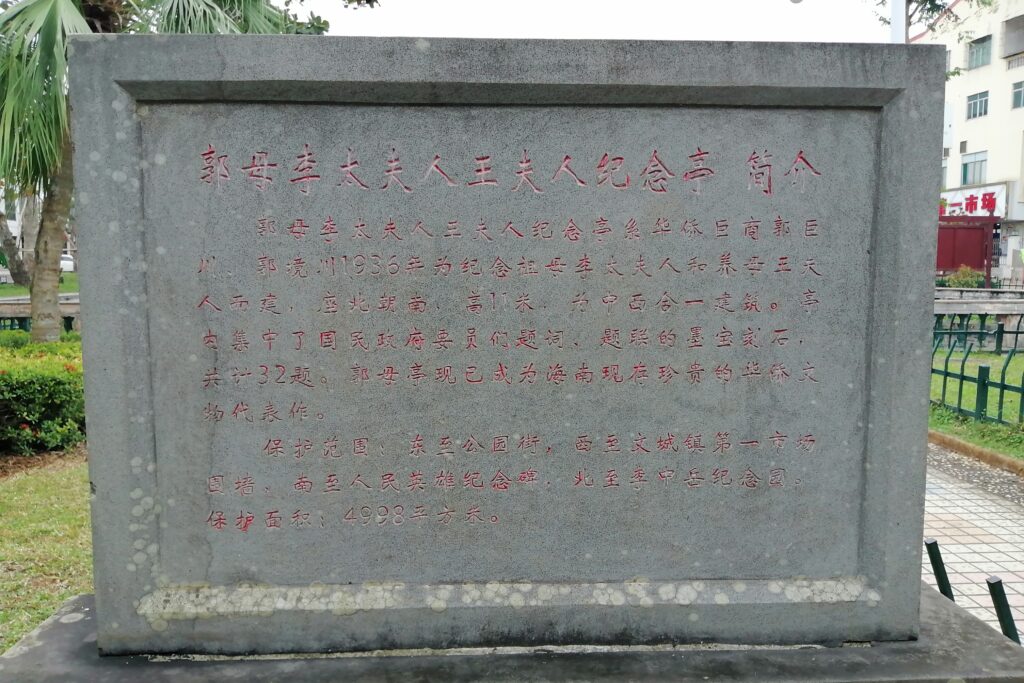 郭母李太夫人王夫人纪念亭 简介
郭母李太夫人王夫人纪念亭系华侨巨商郭巨
川、郭镜川1936年为纪念祖母李太夫人和养母王夫
人而建，座北朝南，高11米，为中西合一建筑。亭
内集中了国民政府要员们题词、题联的墨宝刻石，
共计32题。郭母亭现已成为海南现存珍贵的华侨文
物代表作。
保护范围：东至公园街，西至文城镇第一市场
围墙，南至人民英雄纪念碑，北至李中岳纪念园。
保护面积：4998平方米。
一市场